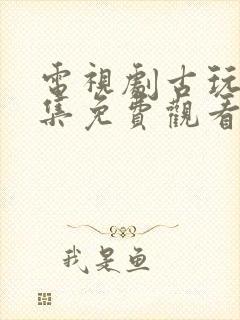 電視劇古玩
集免費觀看
我是魚